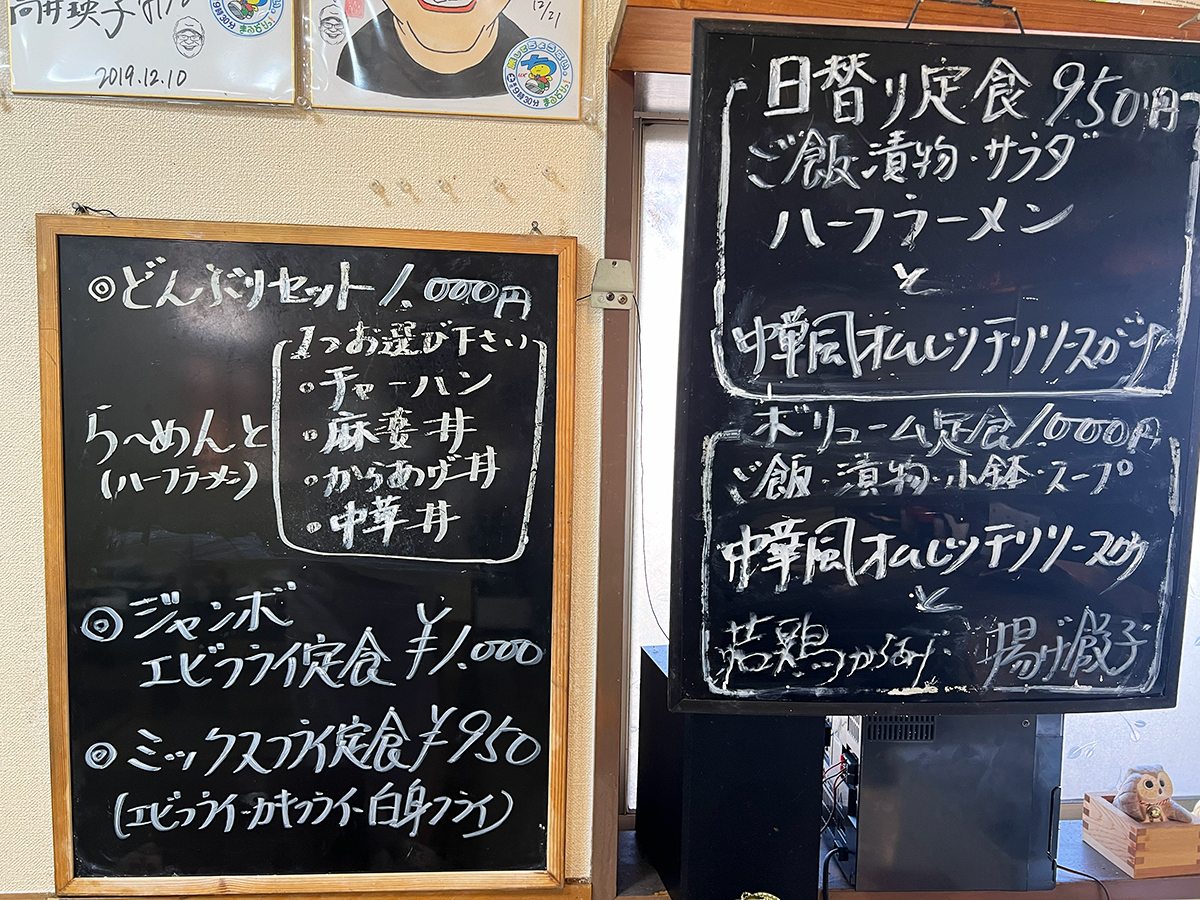 2019.12.10
12/21
◎どんぶりセット 1.000円
1つお選び下さい
らーめんと
(ハーフラーメン)
・チャーハン
・麻婆丼
・からあげ丼
・中華丼
◎ジャンボ
エビフライ定食 ¥1.000
◎ミックスフライ定食 ¥950
(エビフライ・カキフライ・白身フライ)
日替り定食 950円
ご飯・漬物・サラダ
ハーフラーメン
と
中華風オムレツテリソースガケ
ボリューム定食 1.000円
ご飯・漬物・小鉢・スープ
中華風オムレツテリソース
と
若鶏からあげ 揚げ餃子